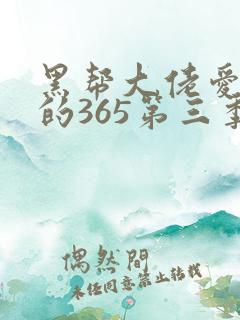 黑帮大佬爱
的365第三季
偶然間
未任同意禁止转载